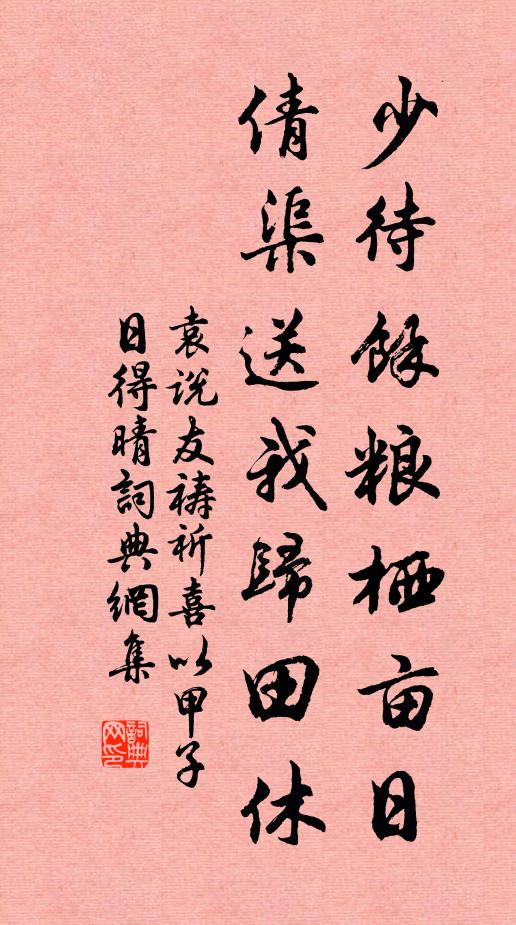 少待餘粮栖亩日
倩渠送我歸田休
袁说友禱祈喜以甲子
日得晴詞典網集
詞典网印